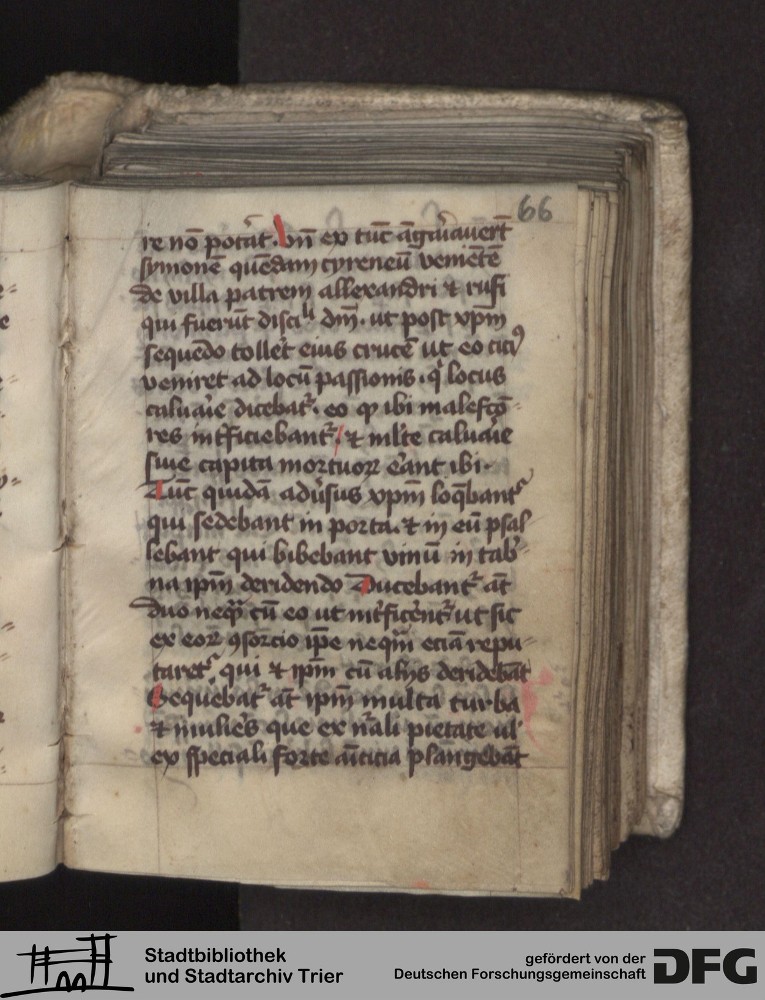 66
re nō potāt. Vn̄ ex tūc āgāiauert̄
symonē quēdam cyreneū venietē
de villa patrem allexandri ⁊ rufi
qui fuerūt disciłi dn̄i. ut post xp̄m
sequēdo tollet eius crucē ut eo citiꝰ
veniret ad locū passionis. q̄ locus
caluaīe dicebat᷑. eo ꝙ ibi malefco᷑
res int̄ficiebant᷑. ⁊ ml̄te caluaīe
siue capita mortuoꝝ e᷑ant ibi.
Tūc quidā adu᷑sus xp̄m loq̄bant᷑
qui sedebant in porta. ⁊ in eū psal
lebant qui bibebant vinū in tab᷑
na ip̄m deridendo Ducebant᷑ at̄
duo neq̄ cū eo ut int̄ficēnt᷑ ut sic
ex eoꝝ ꝯsorcio ip̄e neq̄m eciā repu
taret᷑. qui ⁊ ip̄m cū alijs deridebāt
Sequebat᷑ at̄ ip̄m multa turba
⁊ mulie᷑s que ex n̄ali pietate ul᷑
ex speciali forte am̄icicia plangebāt
Stadtbibliothek
und Stadtarchiv Trier
gefördert von der
Deutschen Forschungsgemeinschaft
DFG